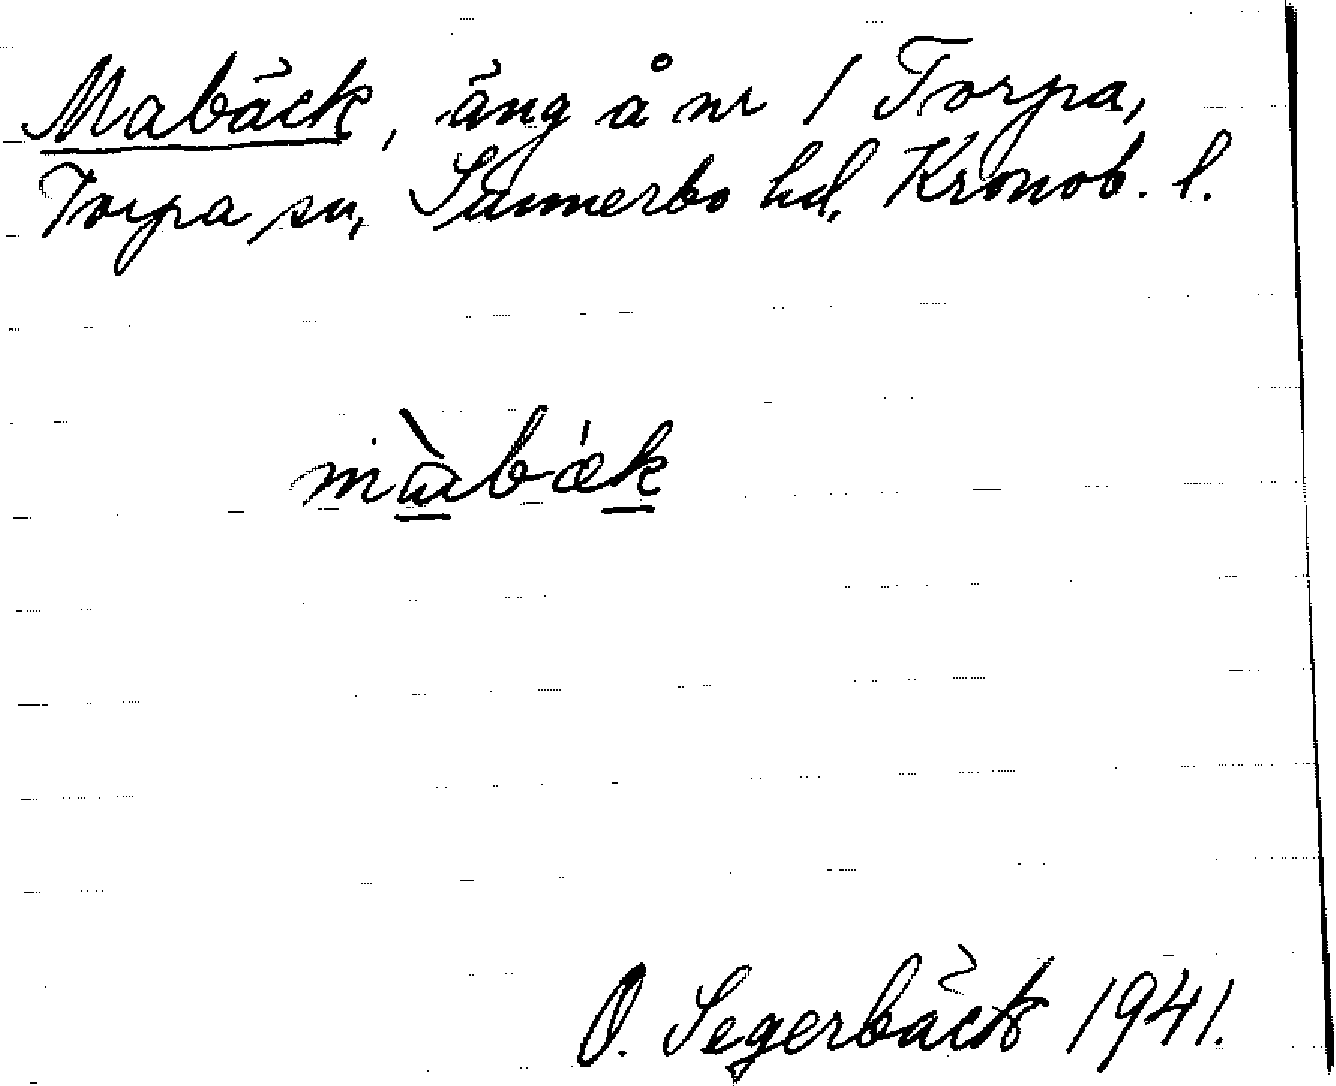 Mabäck, äng å nr 1 Torpa,
Torpa sn, Sunnerbo hd, Kronob. l.
màbǽk
O. Segerbäck 1941.